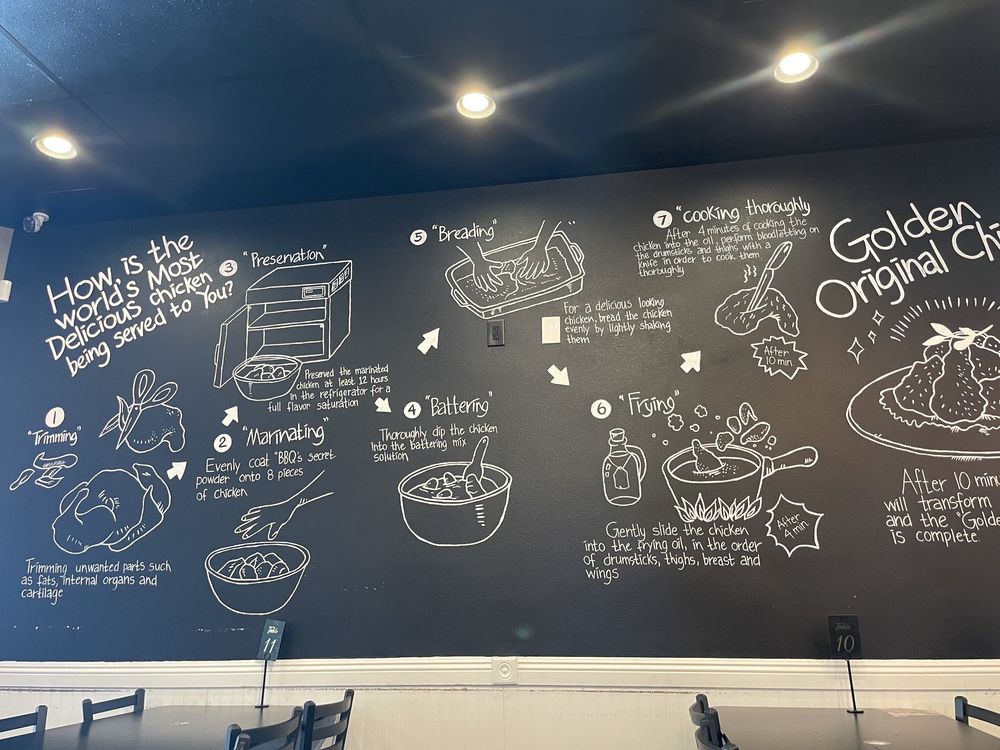 How, is the
world's Most
Delicious chicken
being served to You?
1
"Trimming"
Trimming unwanted parts such
as fats, internal organs and
cartilage
2 "Marinating"
Evenly coat "BBQ's secret
powder onto 8 pieces
of chicken
3 "Preservation"
Preserved the marinated
chicken at least 12 hours
in the refrigerator for a
full flavor saturation
4 "Battering"
Thoroughly dip the chicken
into the battering mix
solution
5 "Breading"
For a delicious looking
chicken, bread the chicken
evenly by lightly shaking
them
6 "Frying"
After
4 min.
Gently slide the chicken
into the frying oil, in the order
of drumsticks, thighs, breast and
wings
7 "cooking thoroughly
After 4 minutes of cooking the
chicken into the oil, perform bloodletting on
the drumsticks and thighs with a
knife in order to cook them
thoroughly
After
10 min.
Golden
Original Chi
After 10 minu
will transform
and the "Golde
is complete
Table
11
Table
10